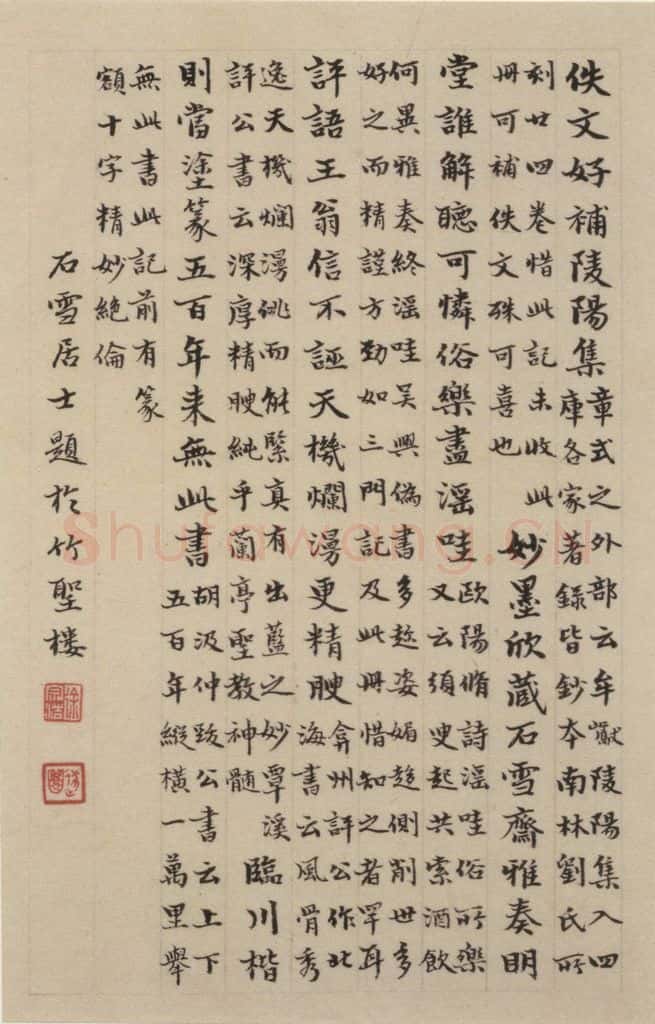 佚文好補陵陽集
章式之外部云牟巘陵陽集入四
庫各家著錄皆鈔本南林劉氏所
刻廿四卷惜此記未收此
冊可補佚文殊可喜也
妙墨欣藏石雪齋雅奏明
堂誰解聽可憐俗樂盡淫哇
歐陽脩詩淫哇俗所樂
又云須叟起共索酒飲
何異雅奏終淫哇吳興偽書多趂姿媚趍側削世多
好之而精謹方勁如三門記及此冊惜知之者罕耳
評語王翁信不誣天機爛漫更精腴
弇州評公作北
海書云風骨秀
逸天機爛漫佻而能緊真有出藍之妙覃溪
評公書云深厚精腴純乎蘭亭聖教神髓
臨川楷
則當塗篆五百年來無此書
胡汲仲跋公書云上下
五百年縱橫一萬里舉
無此書此記前有篆
額十字精妙絕倫
石雪居士題於竹聖樓
徐宗浩
Shufawang.CN